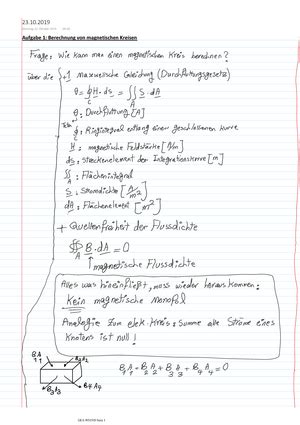 23.10.2019
Aufgabe 1: Berechnung von magnetischen Kreisen
Frage: Wie kann man einen magnetischen Kreis berechnen?
über die +1 maxwelsche Gleichung (Durchflutungsgesetz)
θ = ∮ H · ds = ∬ S · dA
C A
θ: Durchflutung [A]
∮: Ringintegral entlang einer geschlossenen kurve
C
H: magnetische Feldstärke [A/m]
ds: streckenelement der Integrationskurve [m]
∬: Flächenintegral
A
S: stromdichte [A/m²]
dA: Flächenelement [m²]
+ Quellenfreiheit der Flussdichte
∯ B · dA = 0
magnetische Flussdichte
Alles was hineinfließt, muss wieder herauskommen:
Kein magnetische monopol
Analogie zum elek. Kreis: Summe alle Ströme eines
Knotens ist null!
B₁A₁ B₂A₂
B₁A₁ + B₂A₂ + B₃A₃ + B₄A₄ = 0
B₃A₃ B₄A₄